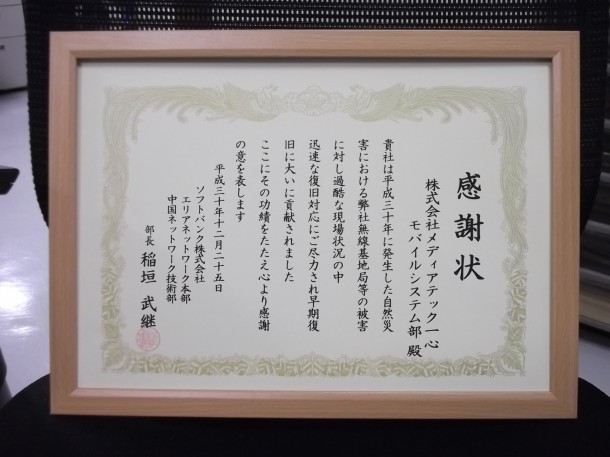 感謝状
株式会社メディアテック一心
モバイルシステム部 殿
貴社は平成三十年に発生した自然災
害における弊社無線基地局等の被害
に対し過酷な現場状況の中
迅速な復旧対応にご尽力され早期復
旧に大いに貢献されました
ここにその功績をたたえ心より感謝
の意を表します
平成三十年十二月二十五日
ソフトバンク株式会社
エリアネットワーク本部
中国ネットワーク技術部
部長 稲垣 武継